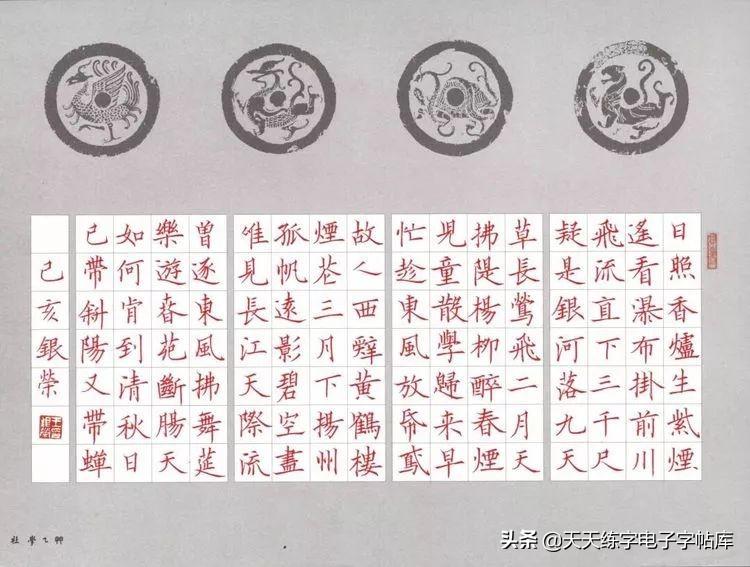 日照香爐生紫煙
遙看瀑布掛前川
飛流直下三千尺
疑是銀河落九天
草長鶯飛二月天
拂隄楊柳醉春煙
兒童散學歸来早
忙趁東風放帋鳶
故人西辤黃鶴樓
煙花三月下揚州
孤帆遠影碧空盡
唯見長江天際流
曾逐東風拂舞筵
樂遊春苑斷腸天
如何肯到清秋日
已帶斜陽又帶蟬
己亥銀榮
头条 @天天练字电子字帖库